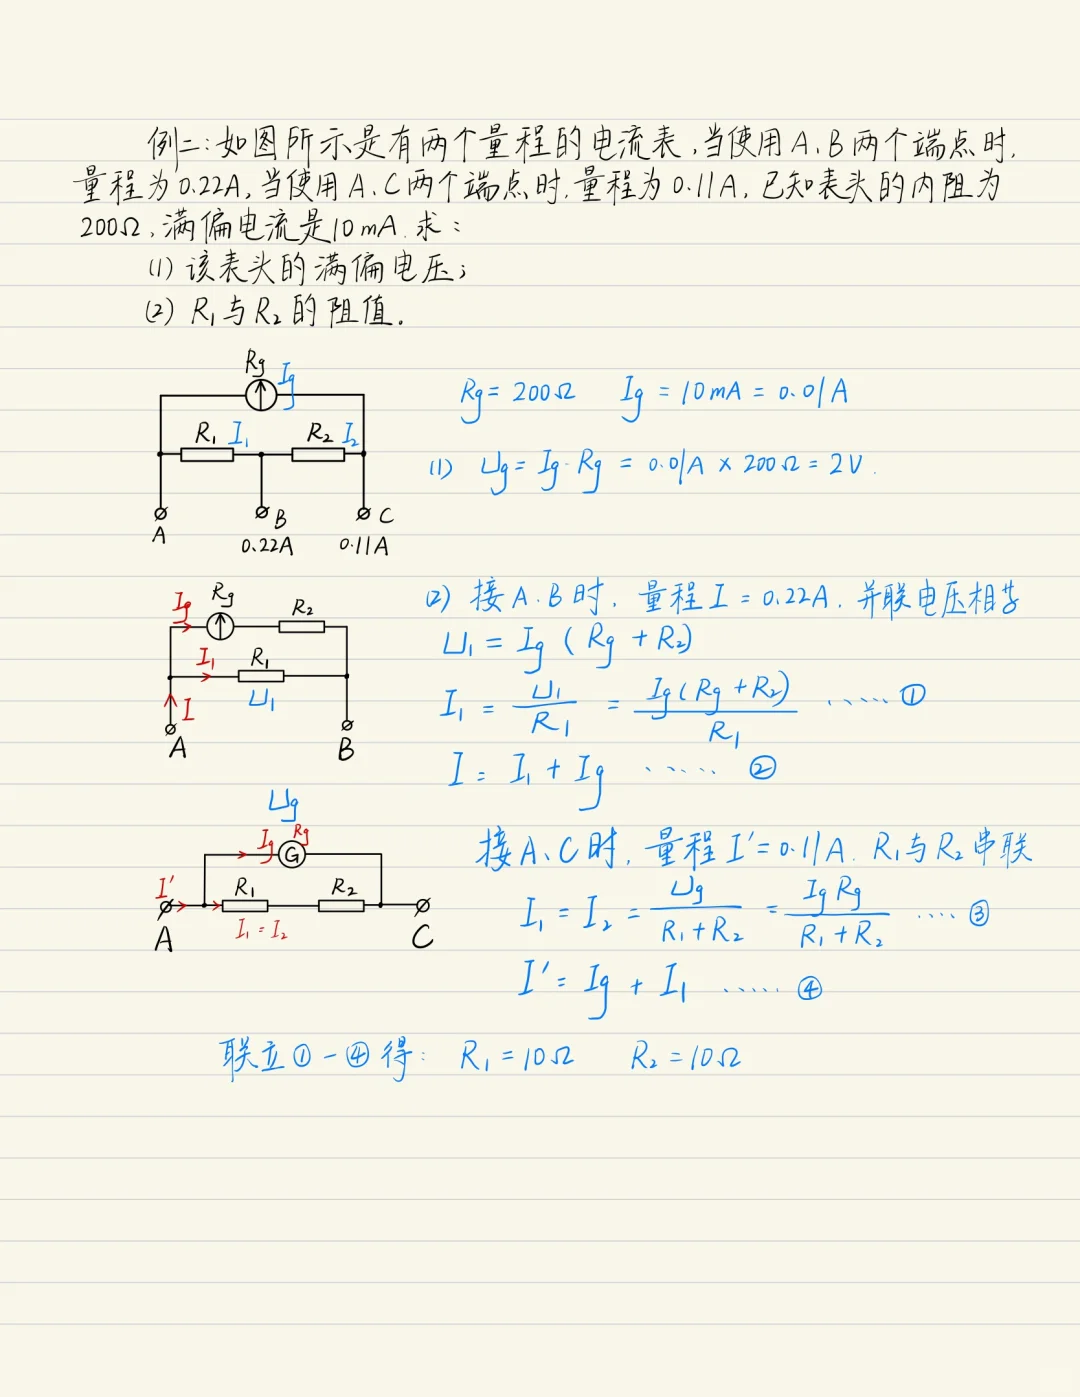 例二:如图所示是有两个量程的电流表,当使用A、B两个端点时,
量程为0.22A,当使用A、C两个端点时,量程为0.11A,已知表头的内阻为
200Ω,满偏电流是10mA.求:
(1) 该表头的满偏电压;
(2) R₁与R₂的阻值.
Rg Ig
R₁ I₁ R₂ I₂
A B C
0.22A 0.11A
Rg = 200Ω Ig = 10mA = 0.01A
(1) Ug = Ig·Rg = 0.01A × 200Ω = 2V.
Ig Rg R₂
I₁ R₁
U₁
I
A B
(2) 接A.B时,量程I = 0.22A.并联电压相等
U₁ = Ig (Rg + R₂)
I₁ = U₁/R₁ = Ig(Rg+R₂)/R₁ ······①
I = I₁ + Ig ······②
Ug
Ig Rg
G
I' R₁ R₂
I₁ = I₂
A C
接A、C时,量程I'=0.11A.R₁与R₂串联
I₁ = I₂ = Ug/(R₁+R₂) = IgRg/(R₁+R₂) ····③
I' = Ig + I₁ ······④
联立①-④得: R₁ = 10Ω R₂ = 10Ω